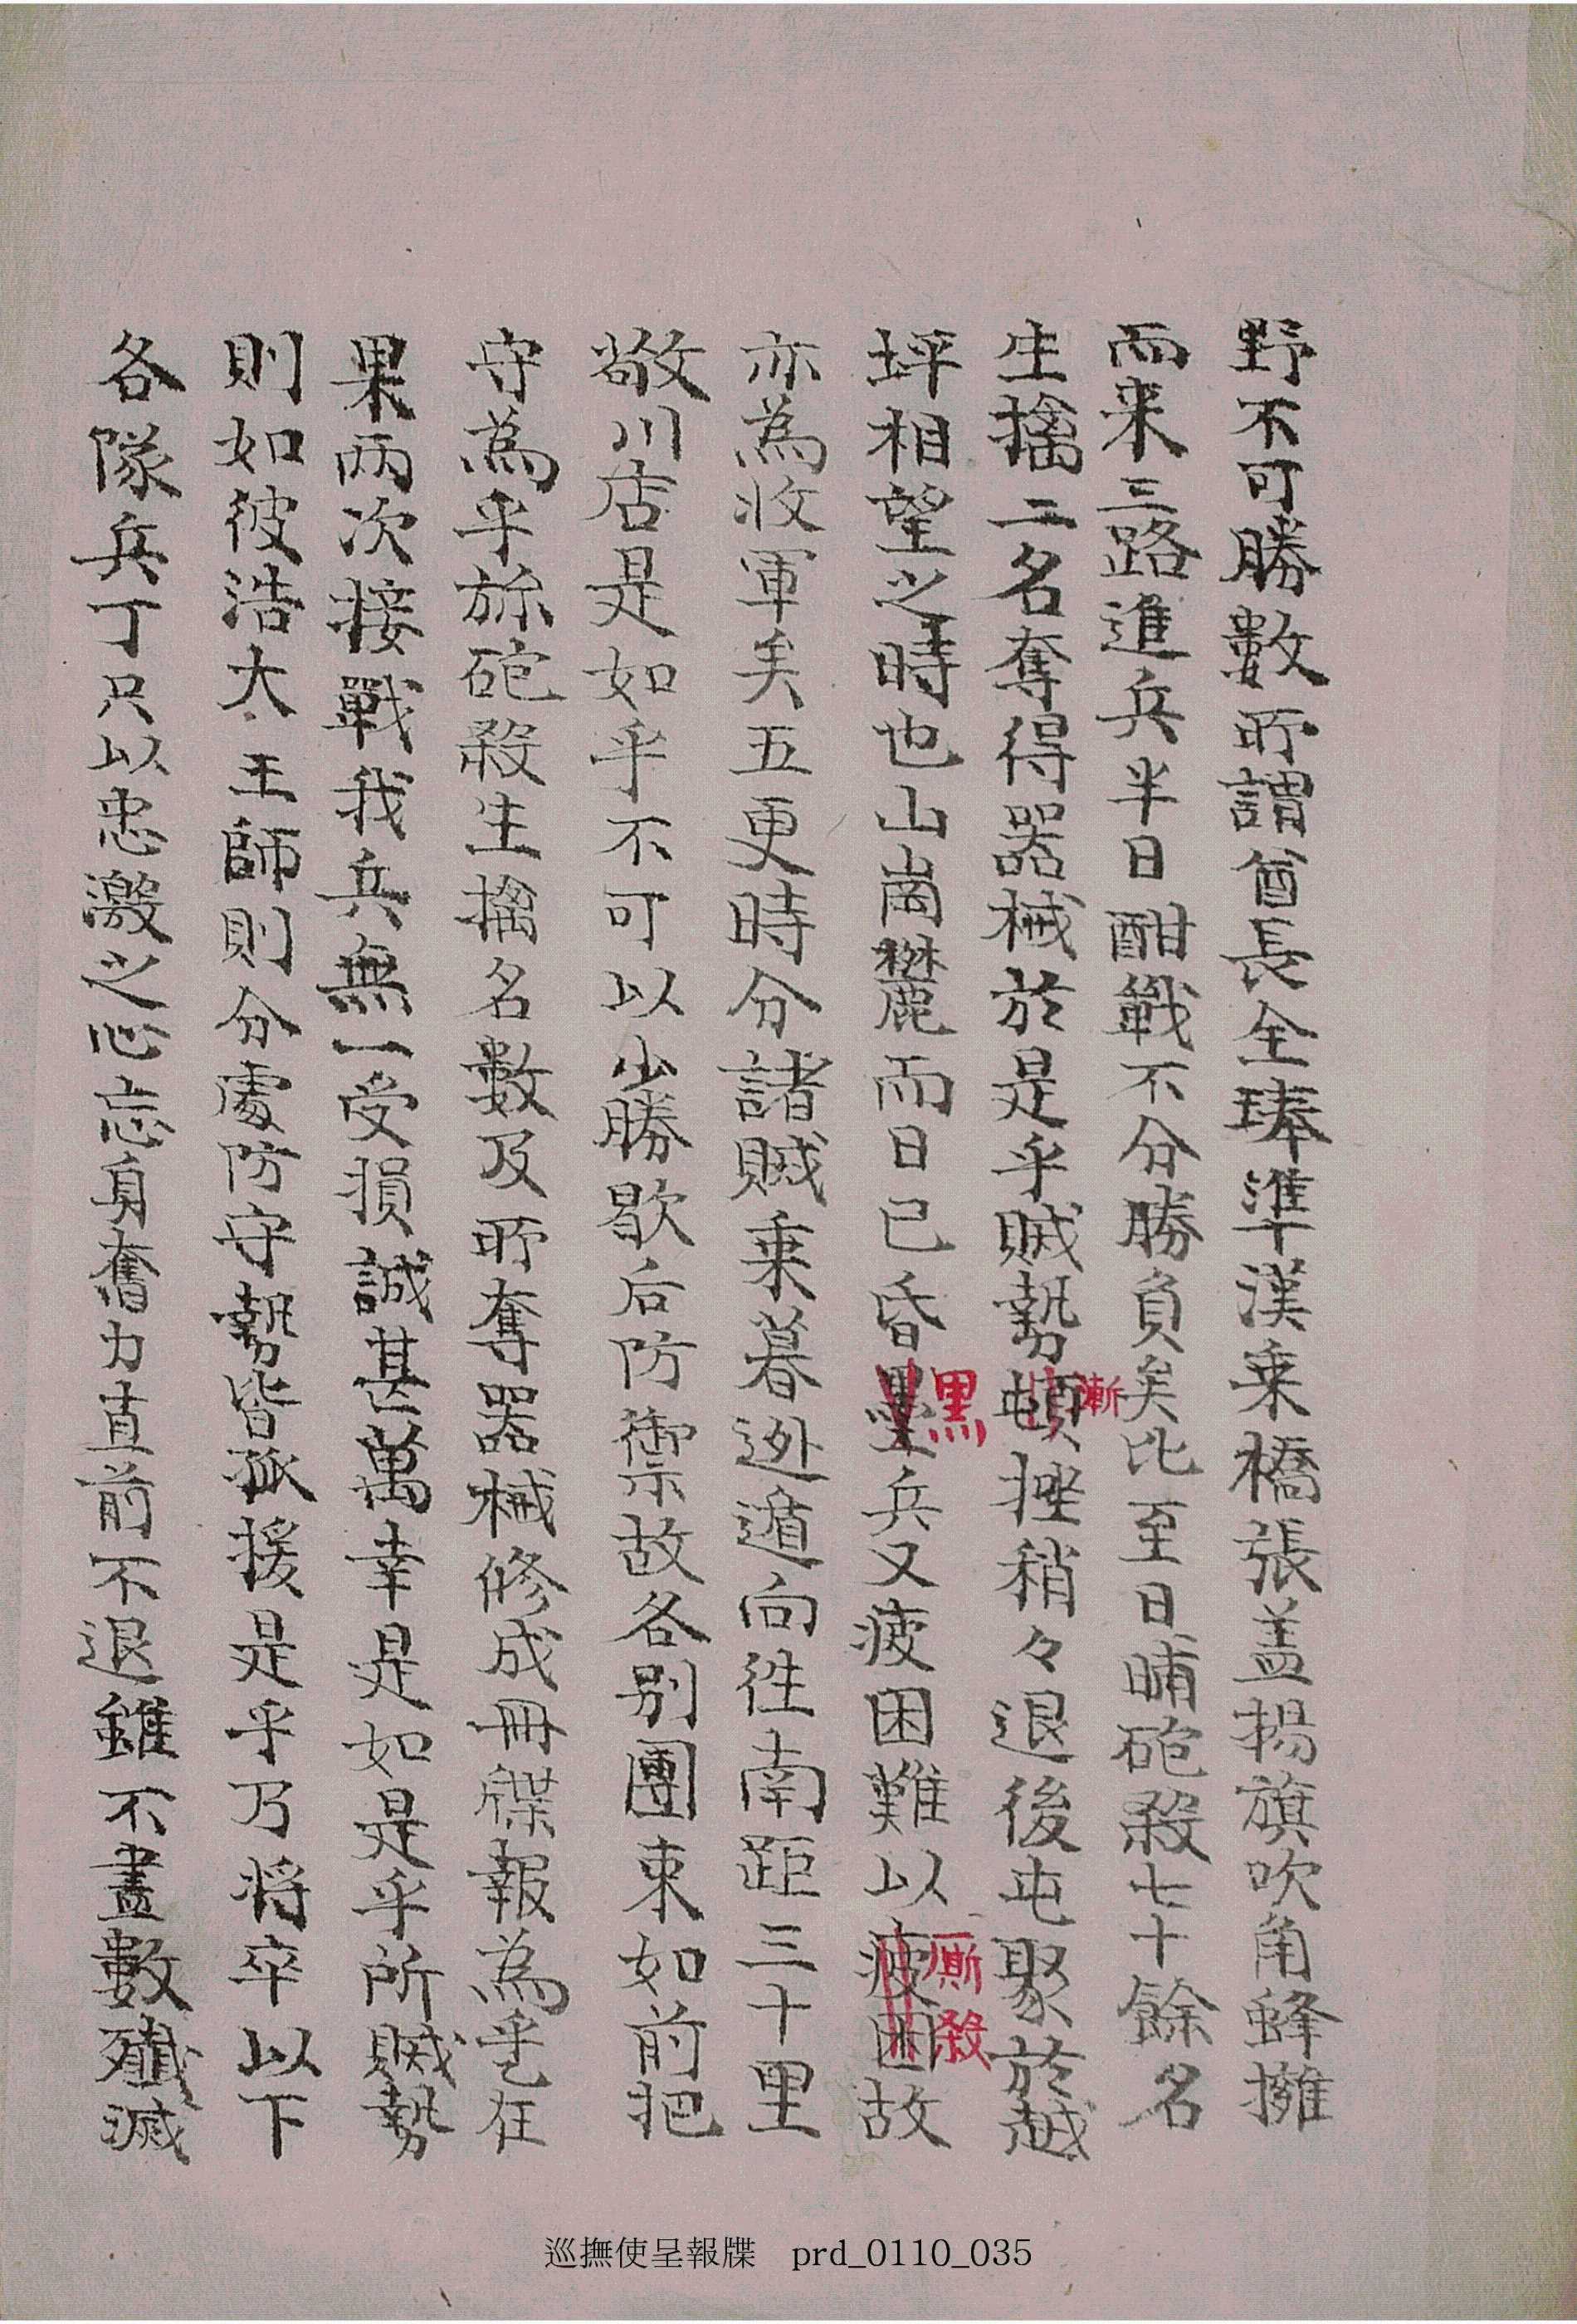 野不可勝數所謂酋長全琫準漢乘橋張盖揚旗吹角蜂擁
而来三路進兵半日酣戰不分勝負矣比至日晡砲殺七十餘名
生擒二名奪得器械於是乎賊勢頓挫稍々退後屯聚於越
漸
坪相望之時也山崗樊麓而日已昏墨兵又疲困難以疲困故
黑
厮殺
亦為收軍矣五更時分諸賊乘暮迯遁向徃南距三十里
敬川店是如乎不可以少勝歇后防禦故各別團束如前把
守為乎旀砲殺生擒名數及所奪器械修成冊牒報為乎在
果两次接戰我兵無一受損誠甚萬幸是如是乎所賊勢
則如彼浩大王師則分處防守勢皆孤援是乎乃將卒以下
各隊兵丁只以忠激之心忘身奮力直前不退雖不盡數殲滅
巡撫使呈報牒 prd_0110_035